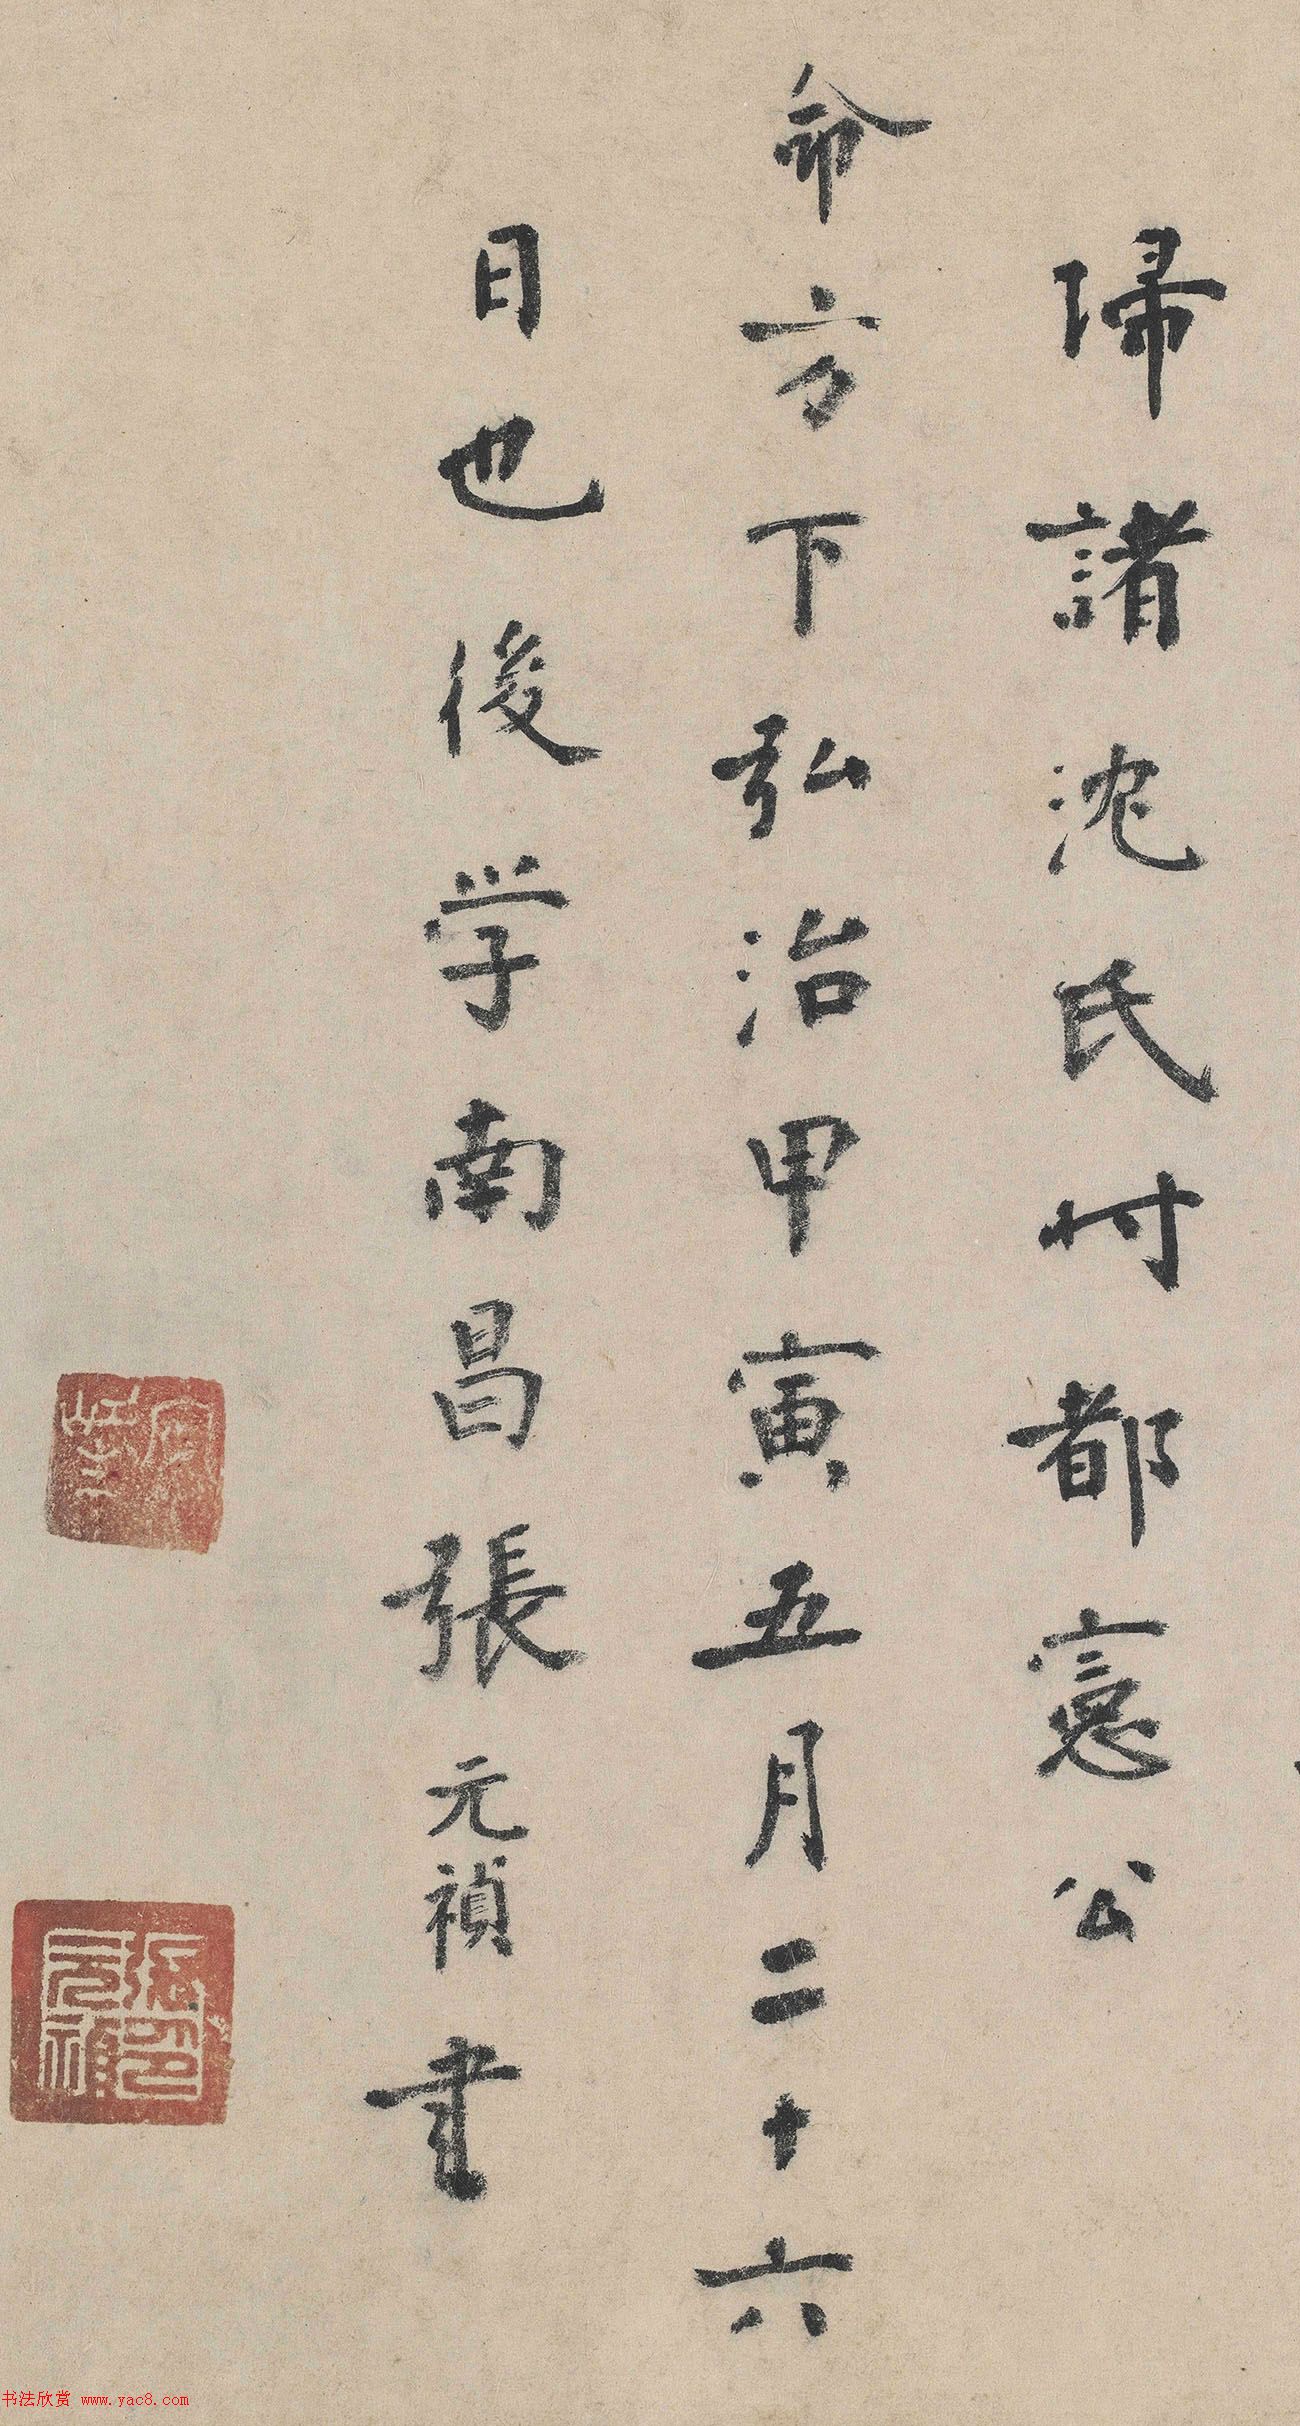 歸諸沈氏時都憲公
命方下弘治甲寅五月二十六
日也後学南昌張元禎書
張元禎印
书法欣赏 www.yac8.com